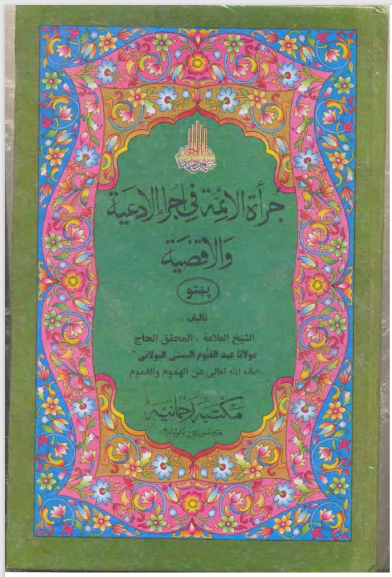 جرأة الائمة في اجراء الادعية
والاقضية
پښتو
تاليف
الشيخ العلامة ، المحقق الحاج
مولانا عبد القيوم البستي البولاني
صانه الله تعالى عن الهموم والغموم
مكتبه رحمانيه